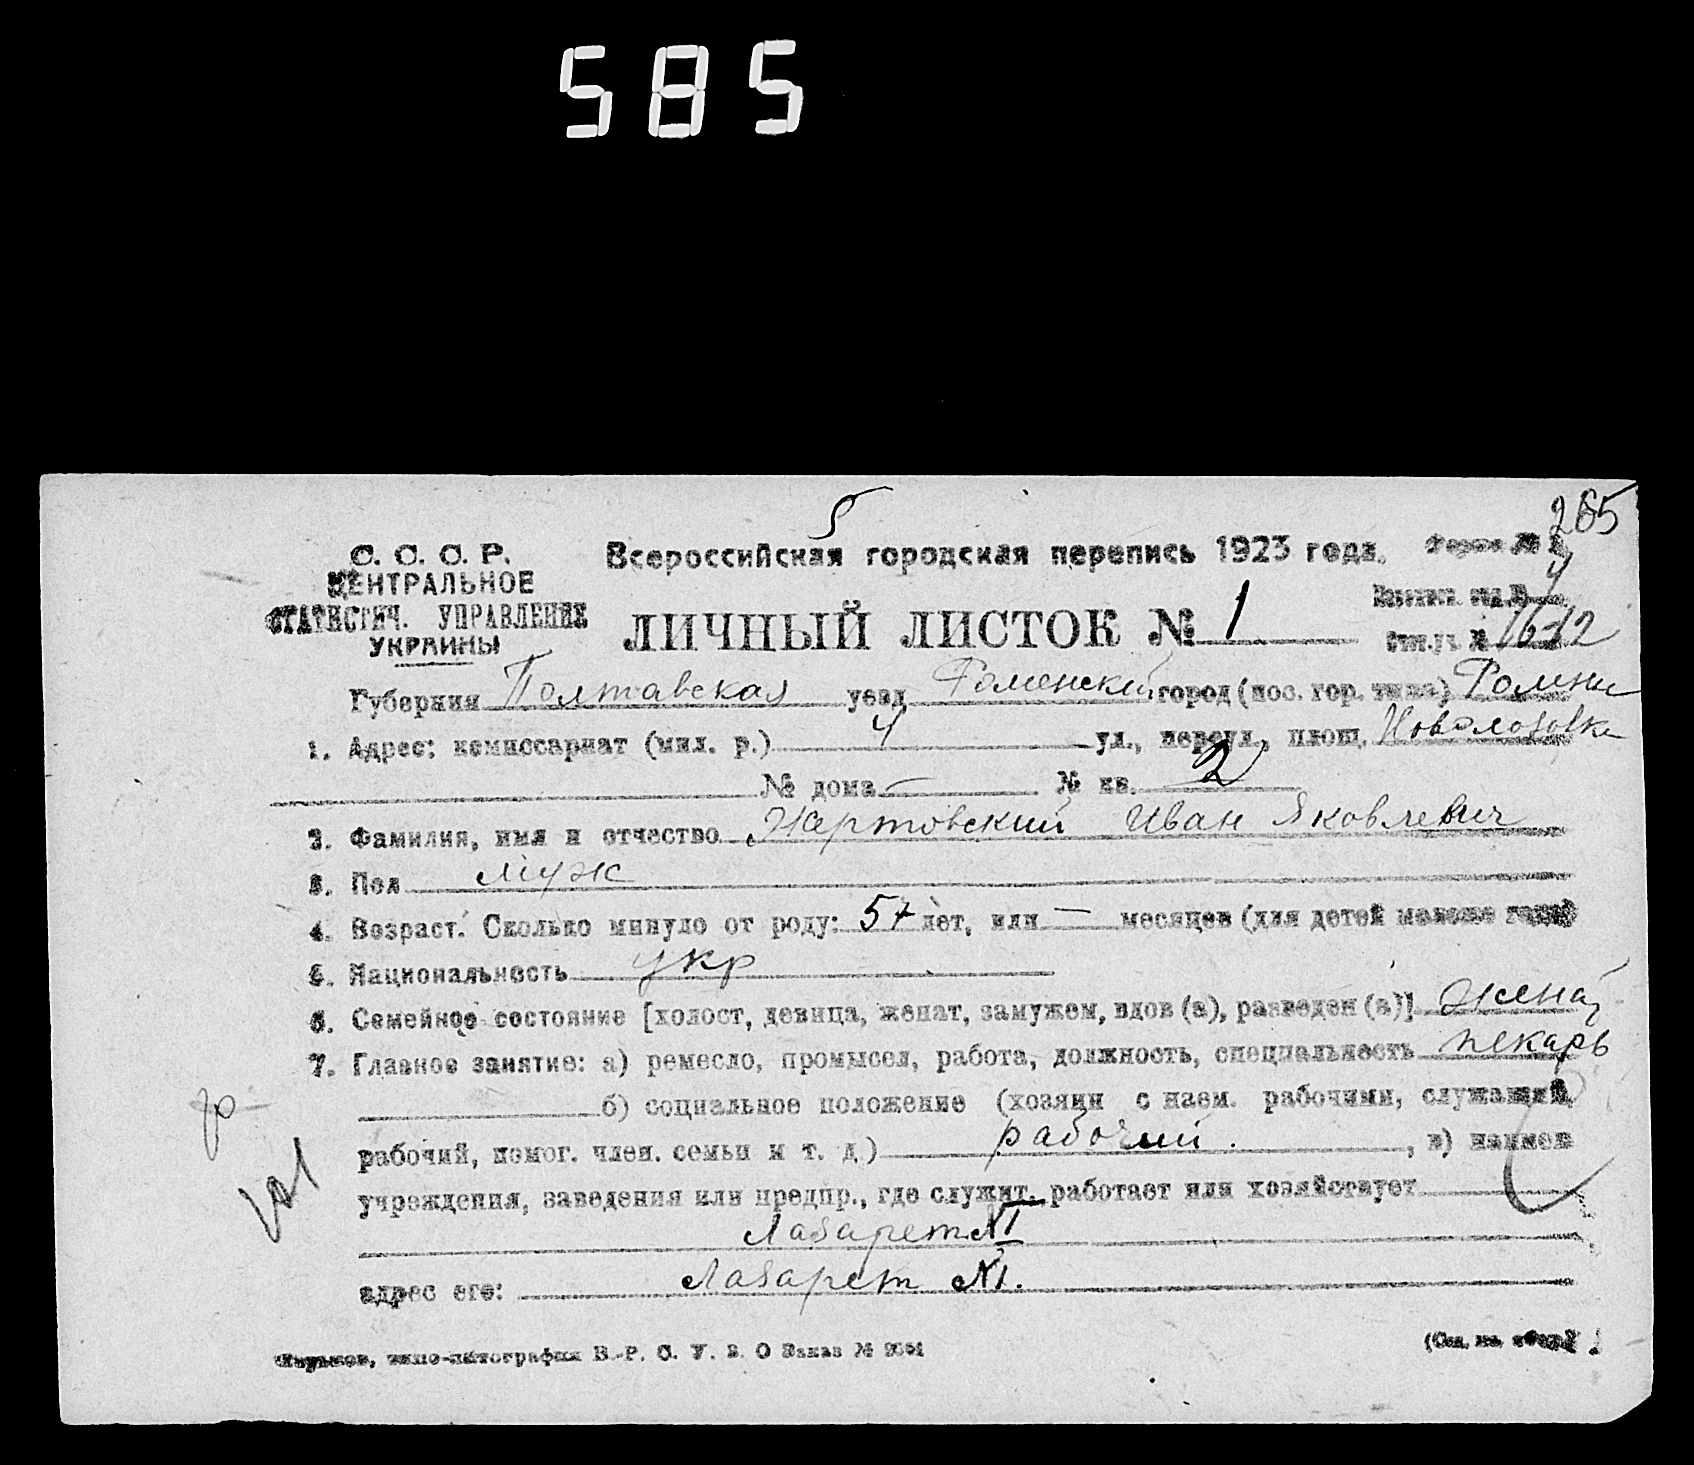 585
285
5
С. С. С. Р.
ЦЕНТРАЛЬНОЕ
СТАТИСТИЧ. УПРАВЛЕНИЕ
УКРАИНЫ
Всероссийская городская перепись 1923 года.
Форма №
ЛИЧНЫЙ ЛИСТОК № 1
4
16-12
Губерния Полтавская уезд Роменский город (пос. гор. типа) Ромны
1. Адрес: комиссариат (мил. р.) 4 ул., переул., площ.
№ дома — № кв. 2
2. Фамилия, имя и отчество Жертовский Иван Яковлевич
3. Пол муж
4. Возраст. Сколько минуло от роду: 57 лет, или — месяцев (для детей моложе года)
5. Национальность укр
6. Семейное состояние [холост, девица, женат, замужем, вдов (а), разведен (а)] жена
7. Главное занятие: а) ремесло, промысел, работа, должность, специальность пекарь
б) социальное положение (хозяин с наем. рабочими, служащий,
рабочий, помог. член. семьи и т. д.) рабочий. , в) наимен
учреждения, заведения или предпр., где служит, работает или хозяйствует
Лазарет №1
адрес его: Лазарет №1.
Харьков, типо-литография В.-Р. С. У. В. О Заказ №
(См. на обор.)